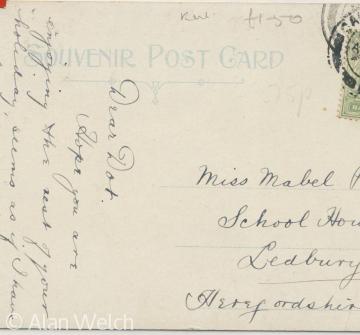 Ken. £1.50
SOUVENIR POST CARD
75p
Dear Dot.
Hope you are
enjoying the rest of your
holiday, seems as if I have
Miss Mabel P
School Hou
Ledbury
Herefordshir
© Alan Welch